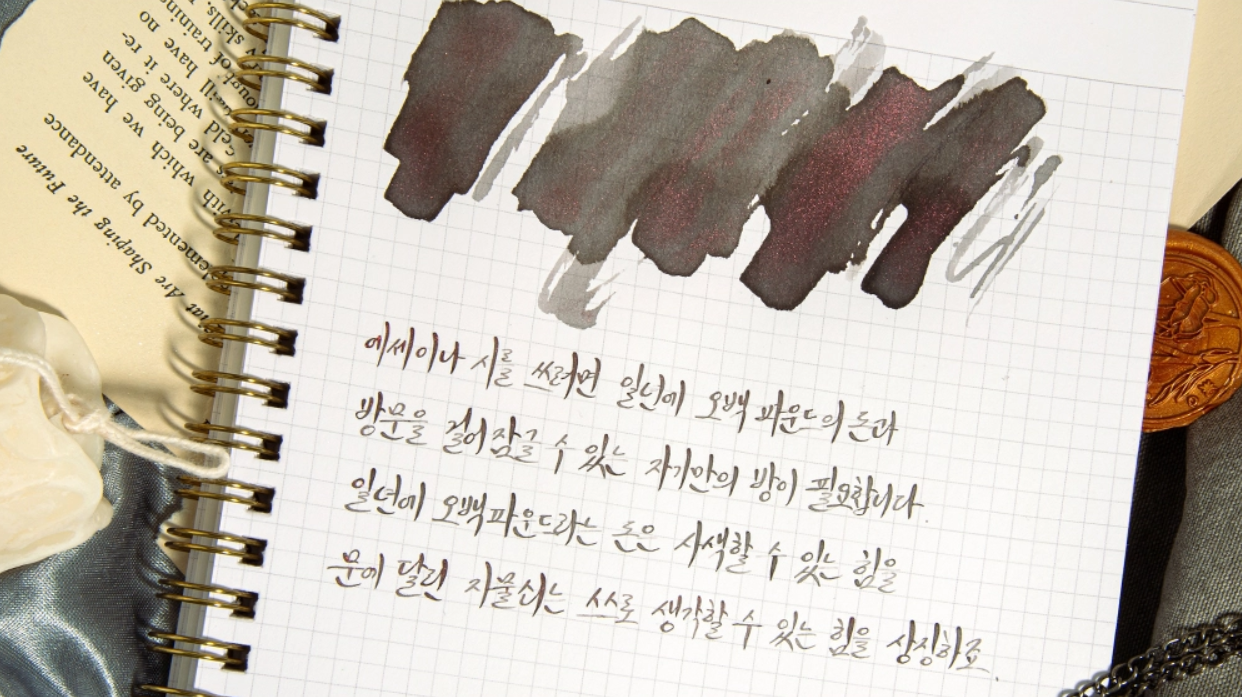 에세이나 시를 쓰려면 일년에 오백 파운드의 돈과
방문을 걸어 잠글 수 있는 자기만의 방이 필요합니다.
일년에 오백파운드라는 돈은 사색할 수 있는 힘을
문에 달린 자물쇠는 스스로 생각할 수 있는 힘을 상징하죠.
Are Shaping the Future
by attendance
which we have
are being given
where it re-
will have no
of training
skills,